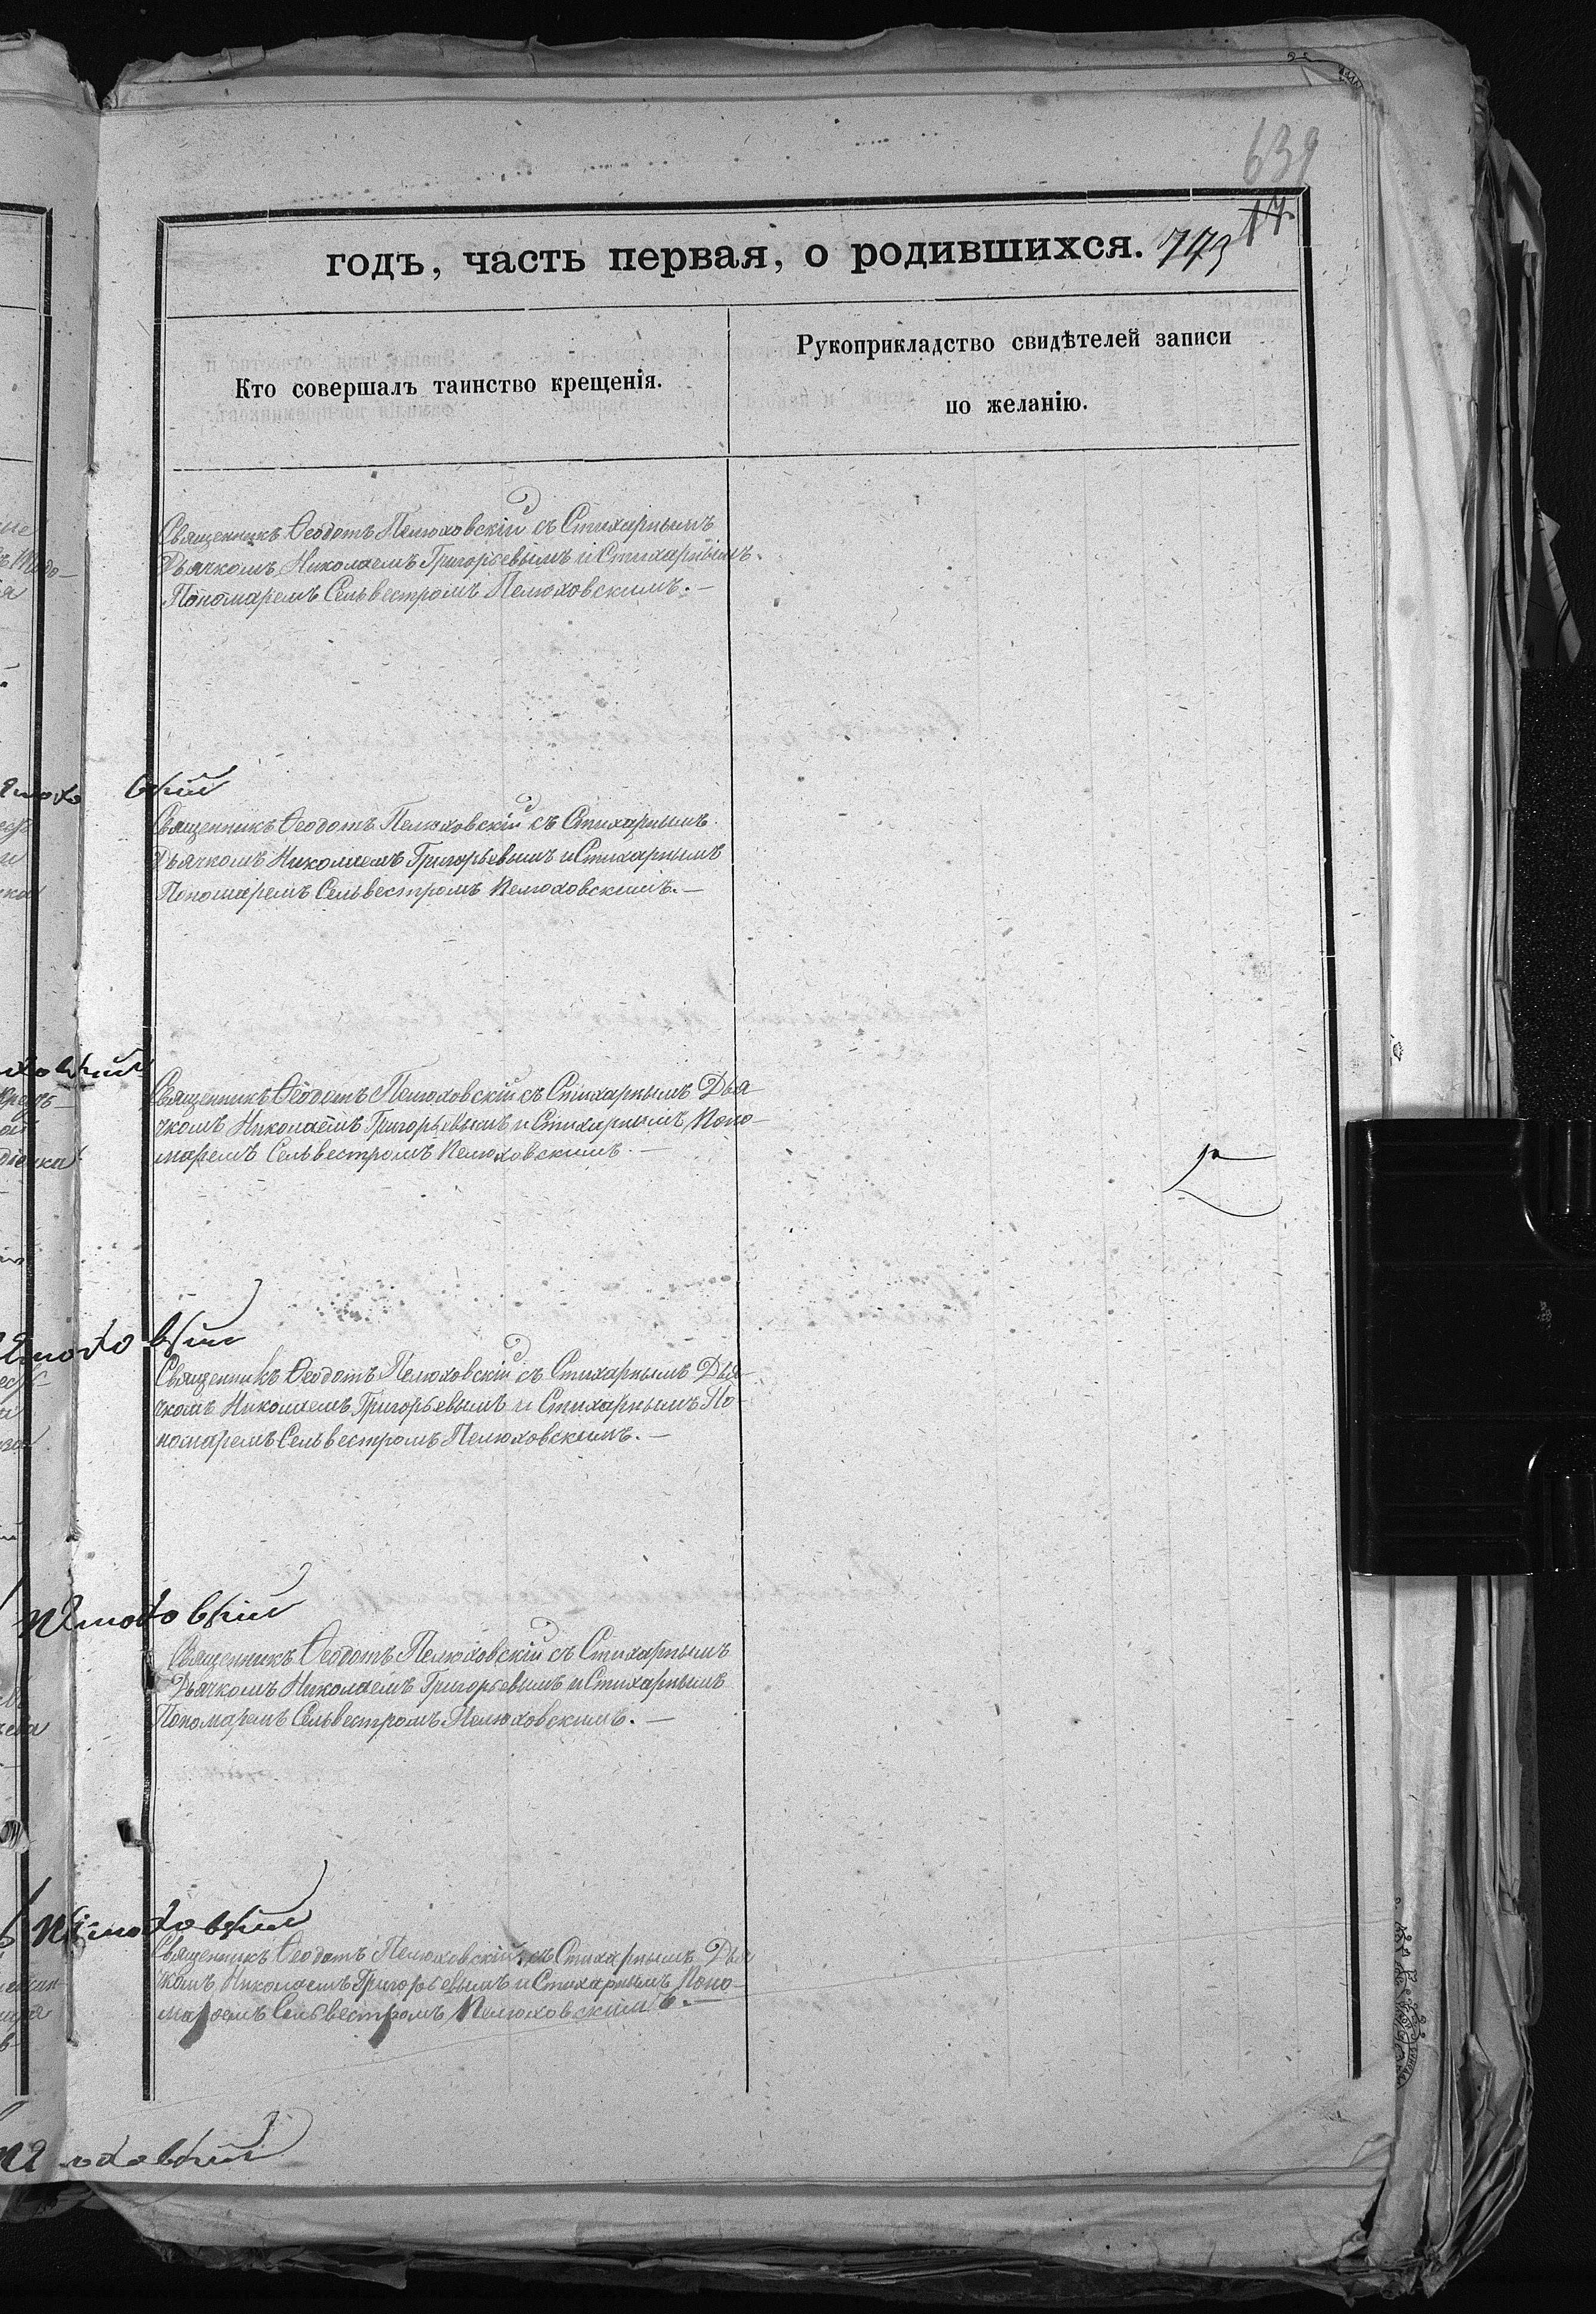 639
17
годъ, часть первая, о родившихся. 773
Кто совершалъ таинство крещенія.
Рукоприкладство свидѣтелей записи
по желанію.
Священникъ Ѳеодотъ Пелюховскій съ Стихарнымъ
Дьячкомъ Николаемъ Григорьевымъ и Стихарнымъ
Пономаремъ Сельвестромъ Пелюховскимъ. —
Священникъ Ѳеодотъ Пелюховскій съ Стихарнымъ
Дьячкомъ Николаемъ Григорьевымъ и Стихарнымъ
Пономаремъ Сельвестромъ Пелюховскимъ. —
Священникъ Ѳеодотъ Пелюховскій съ Стихарнымъ Дья-
чкомъ Николаемъ Григорьевымъ и Стихарнымъ Поно-
маремъ Сельвестромъ Пелюховскимъ. —
Священникъ Ѳеодотъ Пелюховскій съ Стихарнымъ Дья-
чкомъ Николаемъ Григорьевымъ и Стихарнымъ По-
номаремъ Сельвестромъ Пелюховскимъ. —
Пелюховскій
Священникъ Ѳеодотъ Пелюховскій съ Стихарнымъ
Дьячкомъ Николаемъ Григорьевымъ и Стихарнымъ
Пономаремъ Сельвестромъ Пелюховскимъ. —
Пелюховскій
Священникъ Ѳеодотъ Пелюховскій съ Стихарнымъ Дья-
чкомъ Николаемъ Григорьевымъ и Стихарнымъ Поно-
маремъ Сельвестромъ Пелюховскимъ. —